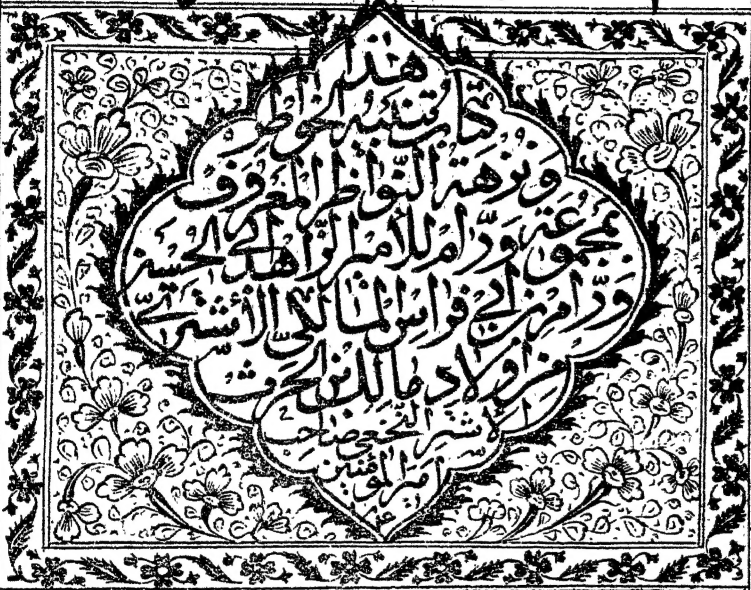 هذا
كتاب تنبيه الخواطر
ونزهة النّواظر المعروف
بمجموعة ورّام للأمير الزّاهد أبي الحسين
ورّام بن أبي فراس المالكيّ الأشتريّ
من أولاد مالك بن الحرث
الأشتر النخعي صاحب
أمير المؤمنين
ع